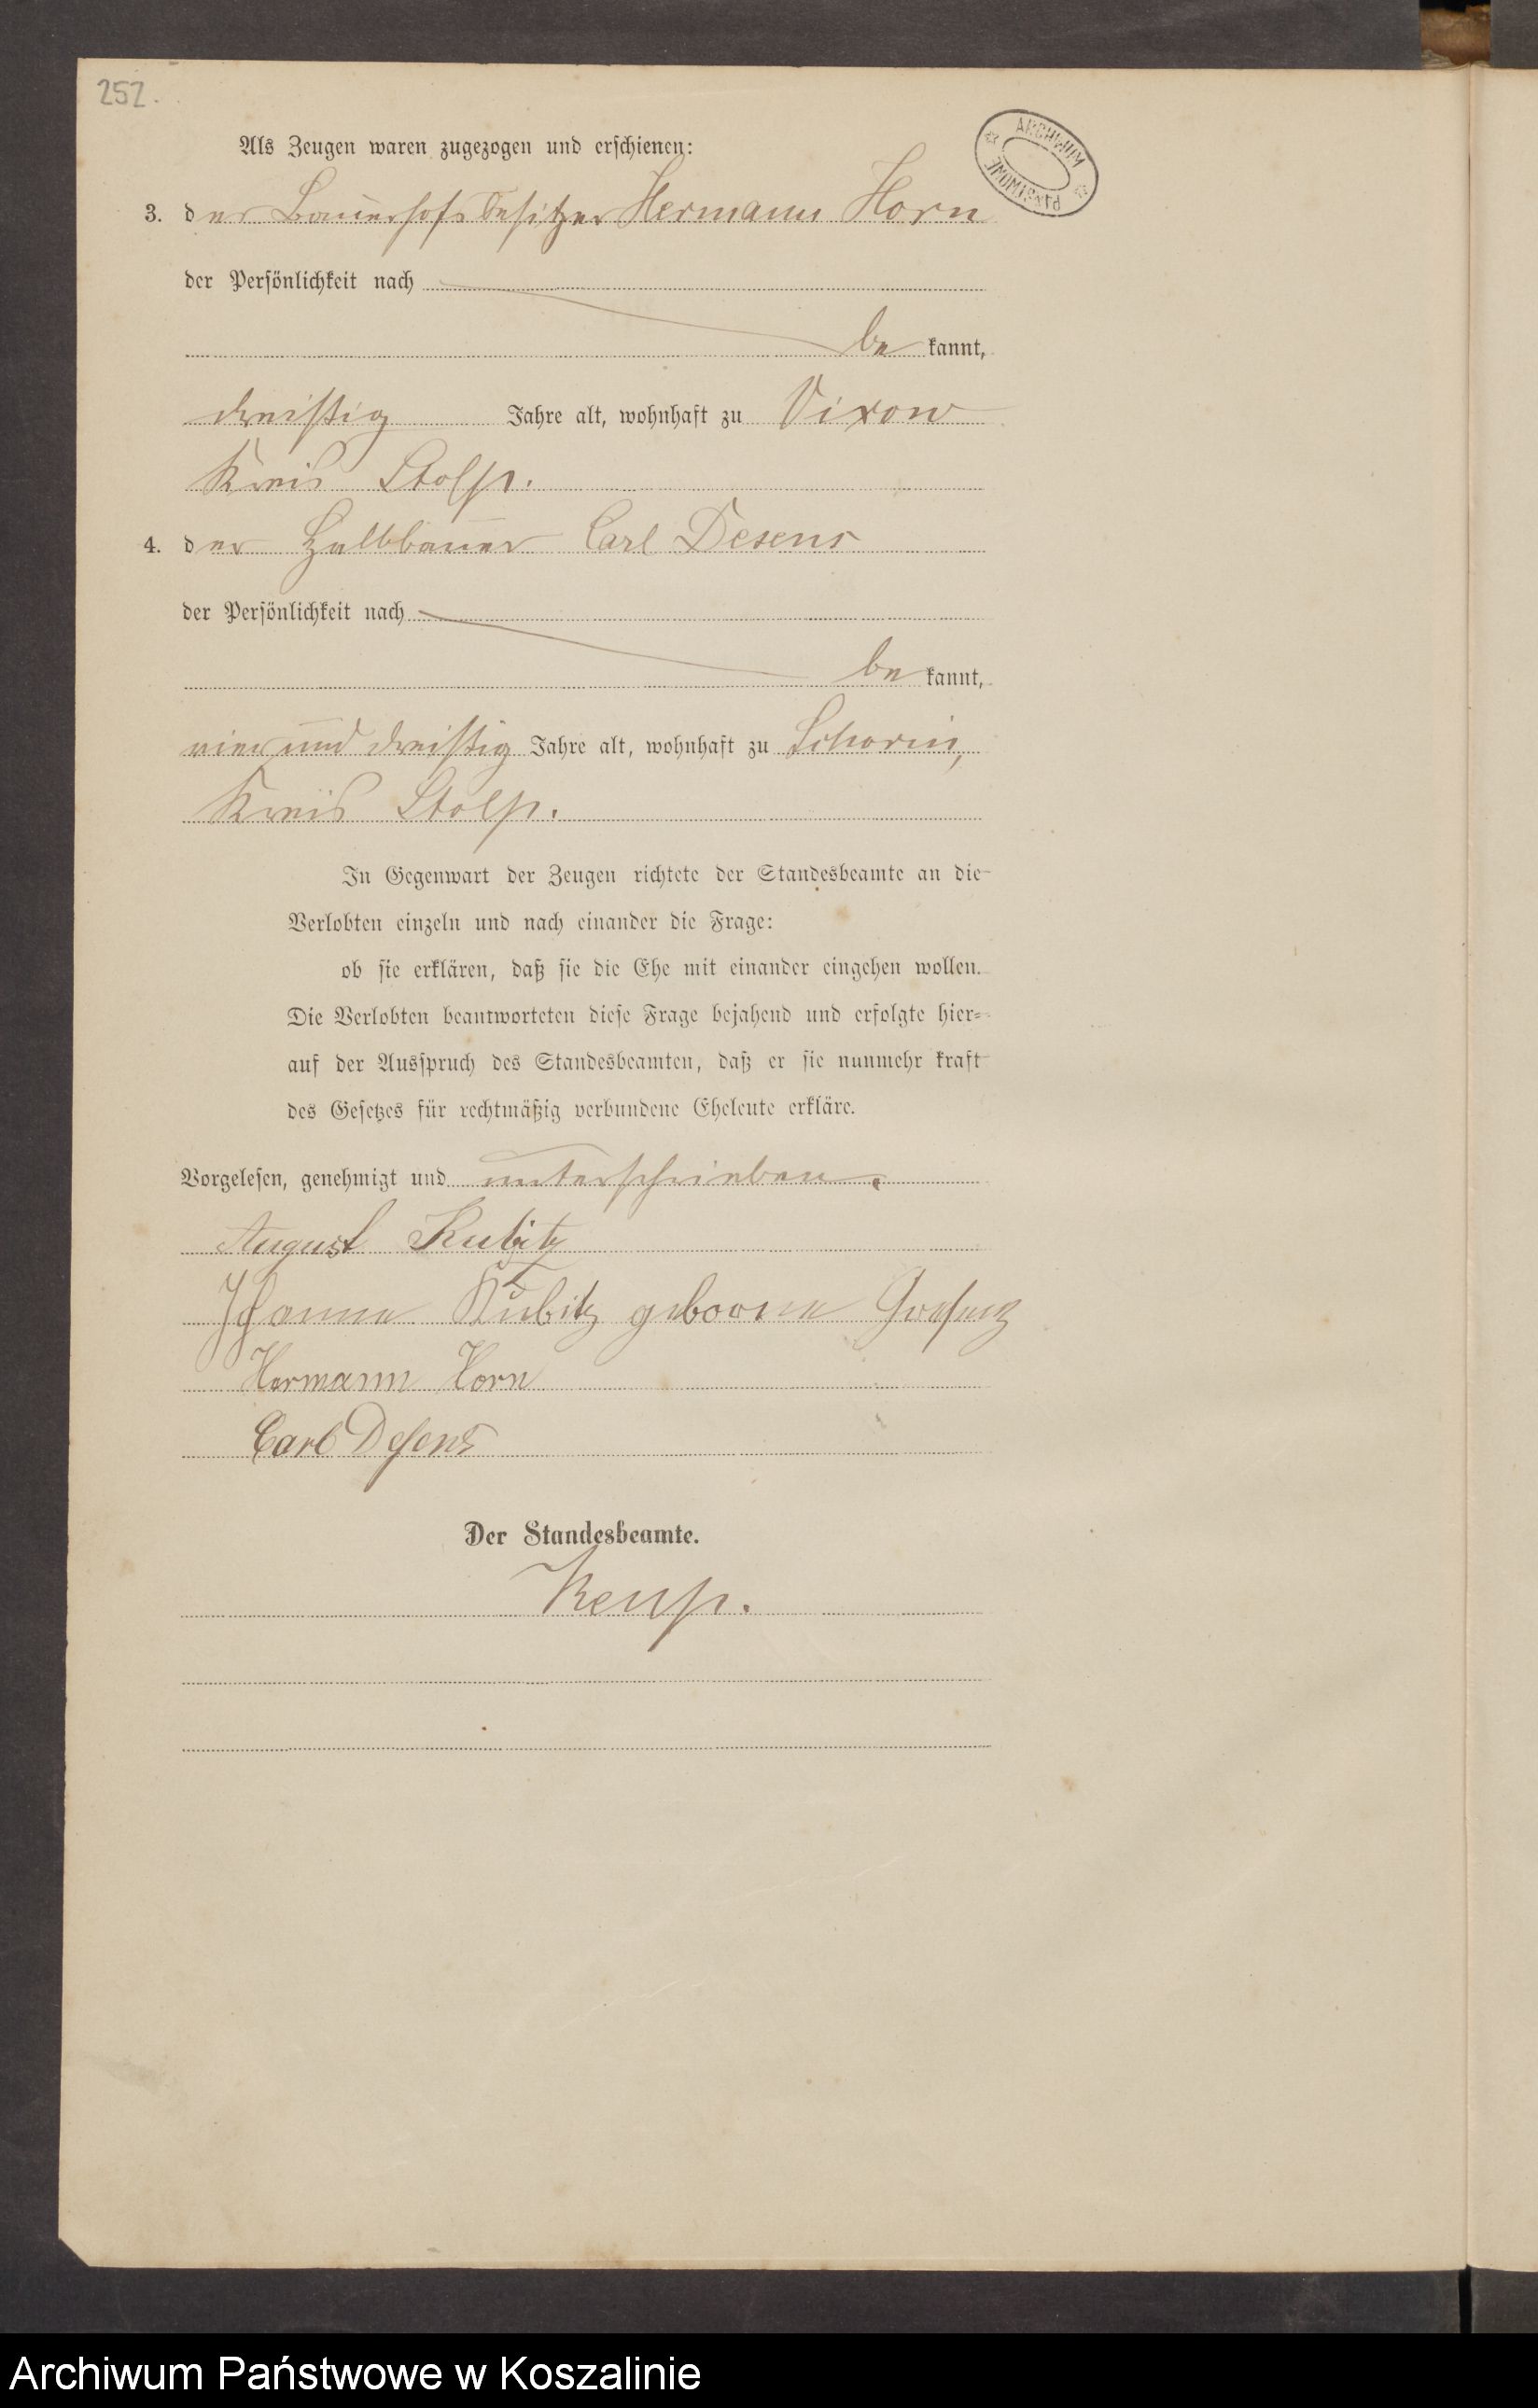 252.
ARCHIWUM PAŃSTWOWE
Als Zeugen waren zugezogen und erschienen:
3. der Bauerhofsbesitzer Hermann Horn
der Persönlichkeit nach
be kannt,
dreißig Jahre alt, wohnhaft zu Vixow
Kreis Stolp.
4. der Halbbauer Carl Desens
der Persönlichkeit nach
be kannt,
vier und dreißig Jahre alt, wohnhaft zu Schorin,
Kreis Stolp.
In Gegenwart der Zeugen richtete der Standesbeamte an die
Verlobten einzeln und nach einander die Frage:
ob sie erklären, daß sie die Ehe mit einander eingehen wollen.
Die Verlobten beantworteten diese Frage bejahend und erfolgte hier-
auf der Ausspruch des Standesbeamten, daß er sie nunmehr kraft
des Gesetzes für rechtmäßig verbundene Eheleute erkläre.
Vorgelesen, genehmigt und unterschrieben.
August Kubitz
Kubitz
Hermann Horn
Carl Desens
Der Standesbeamte.
Archiwum Państwowe w Koszalinie